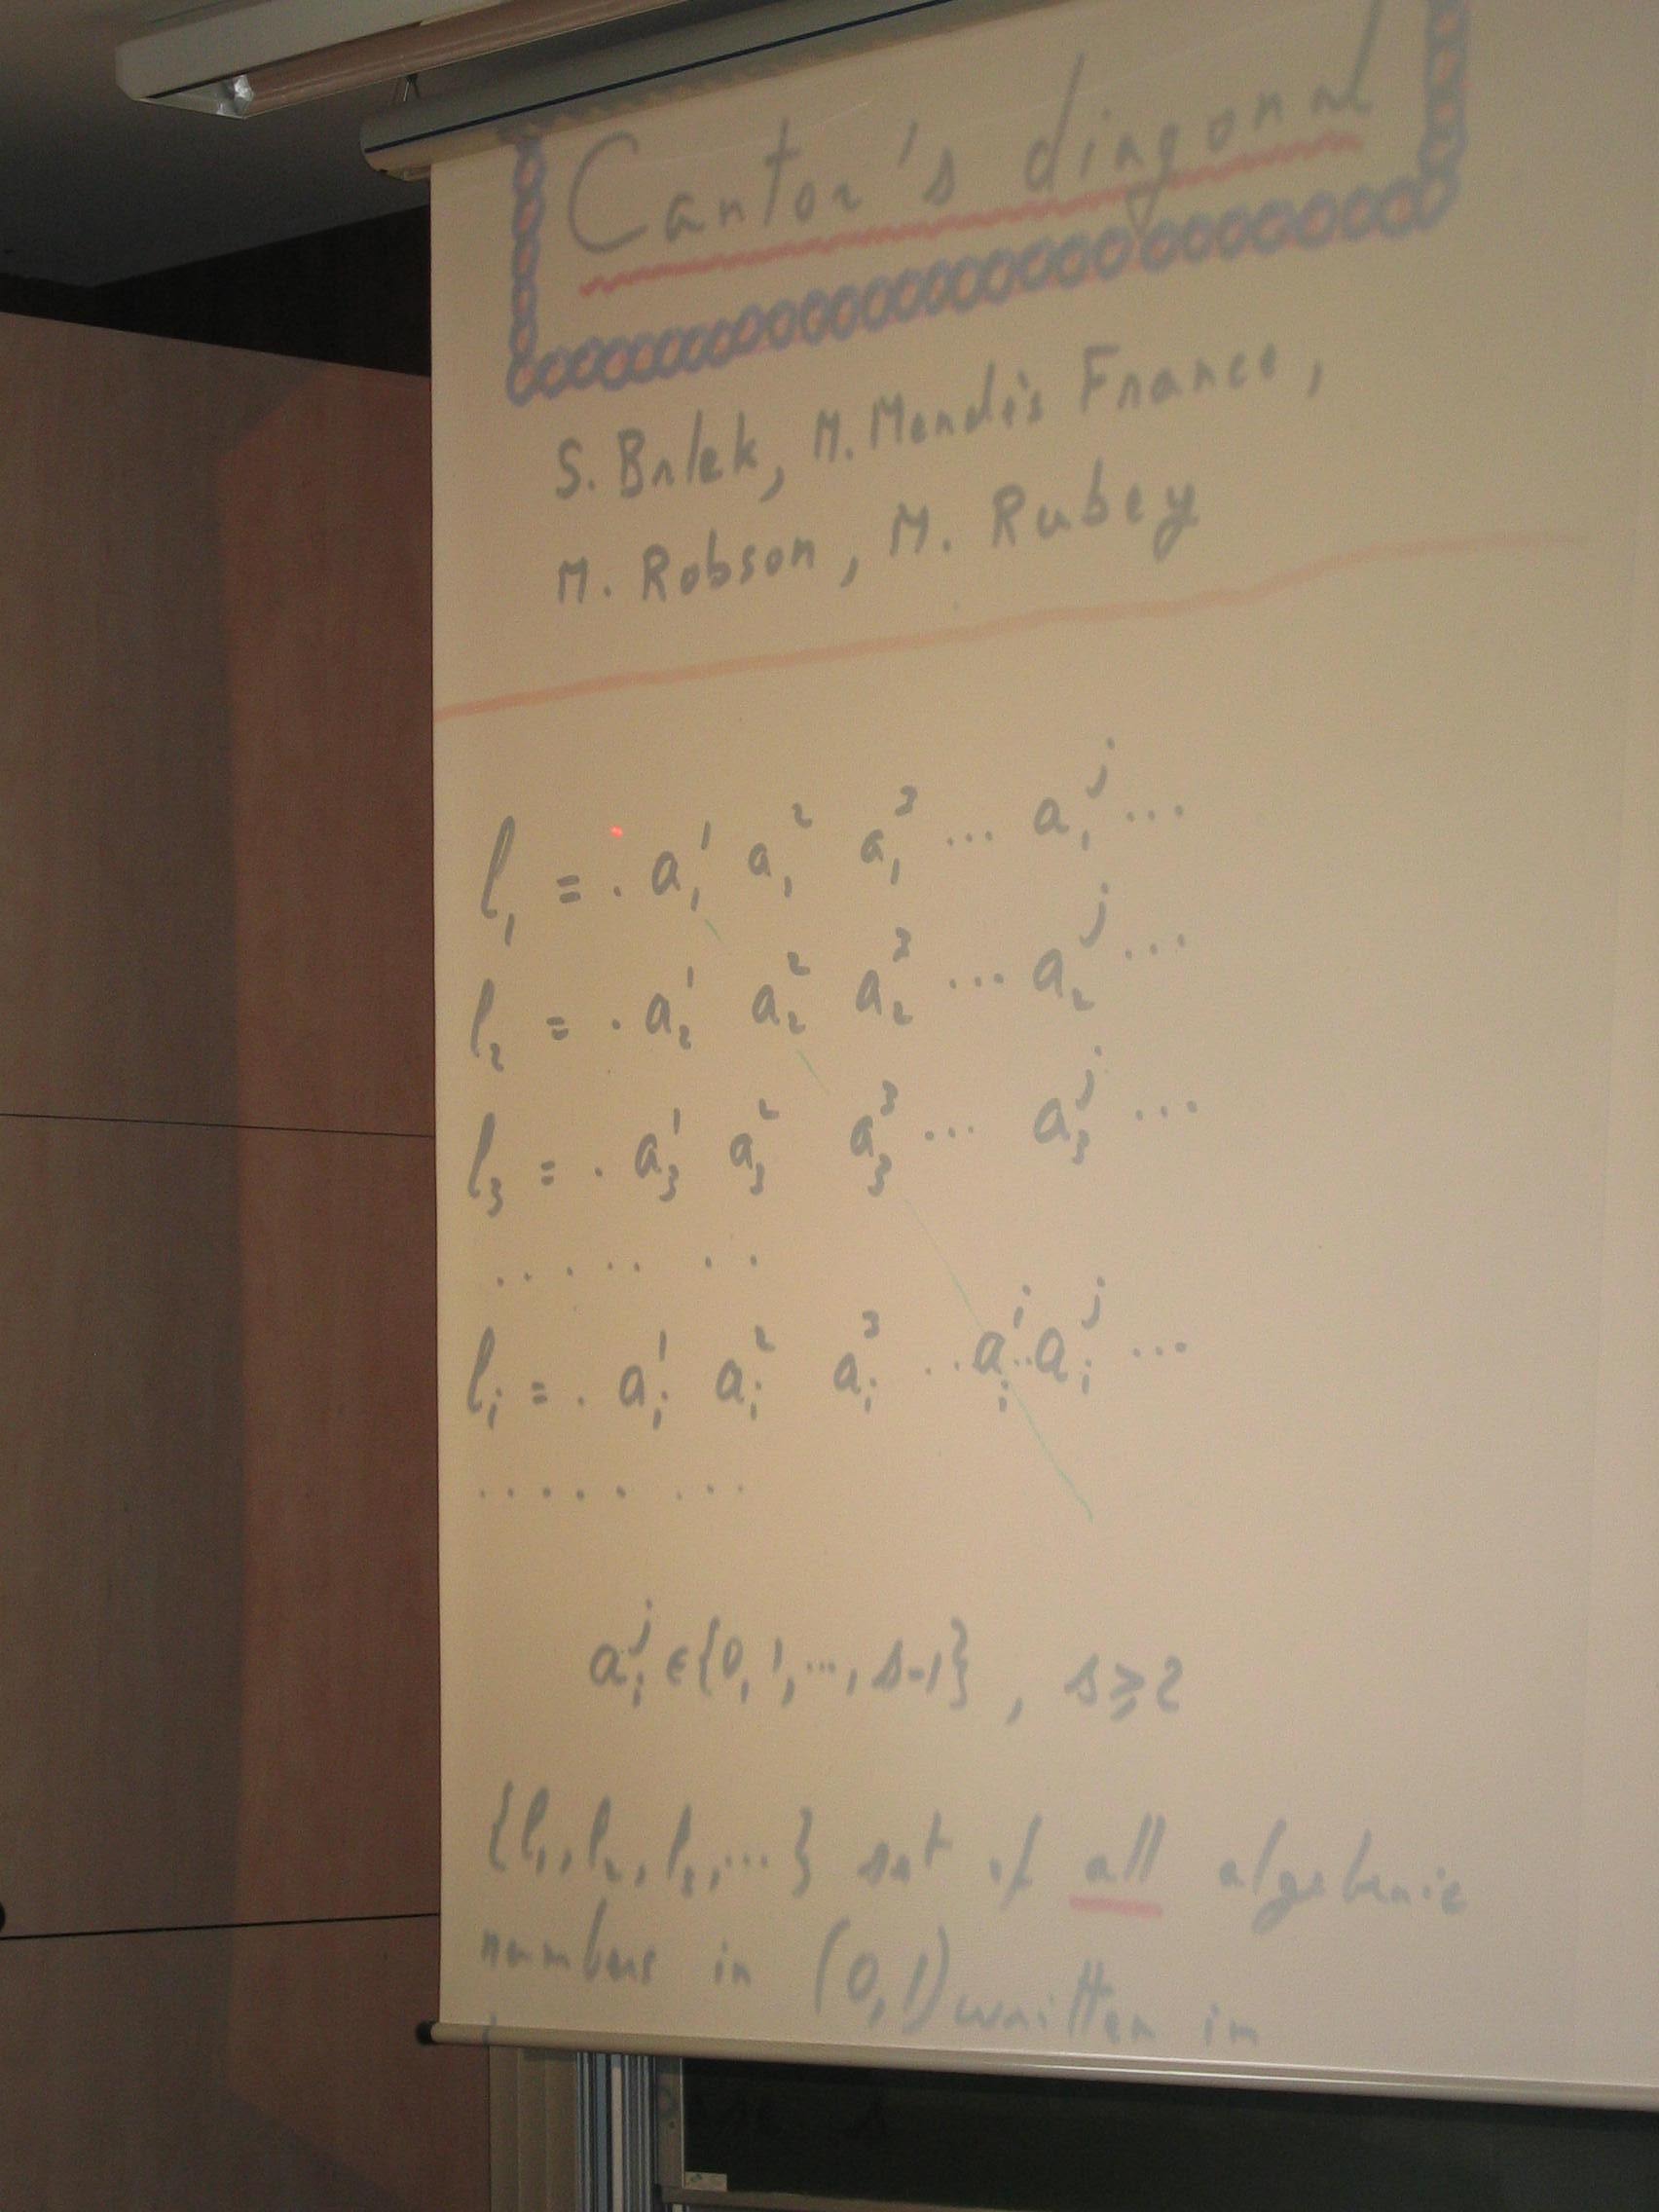 Cantor's diagonal
S. Brlek, M. Mendès France,
M. Robson, M. Rubey
l₁ = . a₁¹ a₁² a₁³ ... a₁ʲ ...
l₂ = . a₂¹ a₂² a₂³ ... a₂ʲ ...
l₃ = . a₃¹ a₃² a₃³ ... a₃ʲ ...
. . . . . . . .
lᵢ = . aᵢ¹ aᵢ² aᵢ³ .. aᵢⁱ .. aᵢʲ ...
. . . . . . . .
aᵢʲ ∈ {0, 1, ..., s-1} , s ⩾ 2
{l₁, l₂, l₃, ...} set of all algebraic
numbers in (0,1) written in